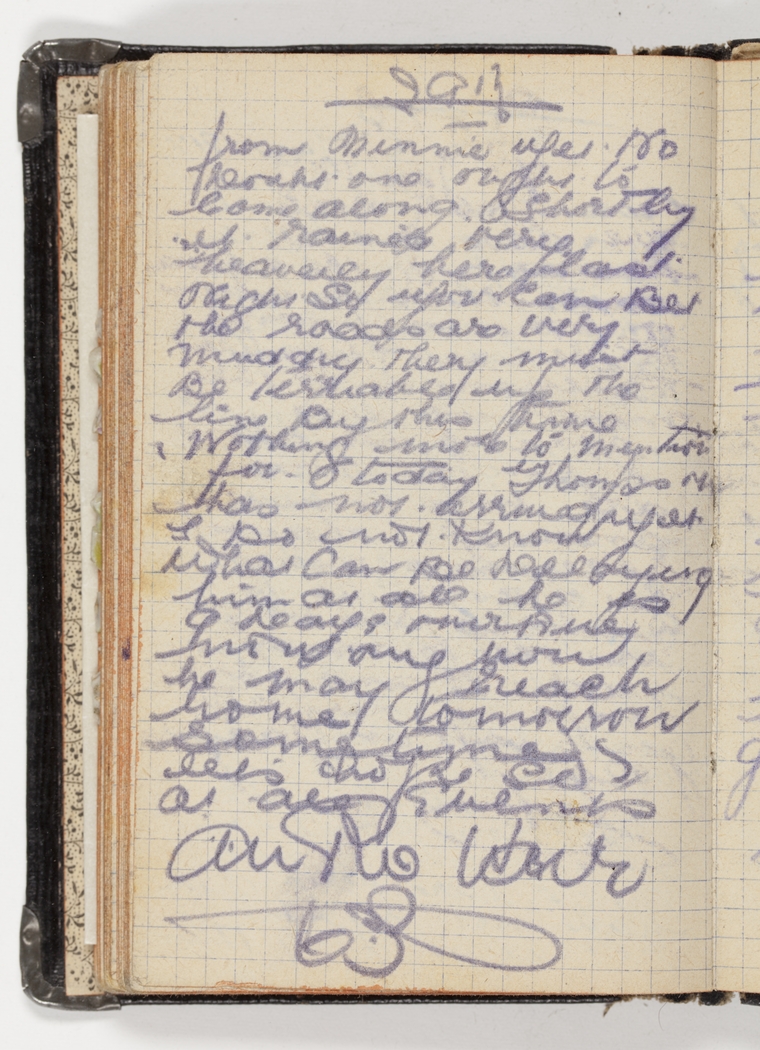 from Minnie yet. No
doubt one ought to
come along. Shortly
it rained very
heavily here last
night So you can Bet
the roads are very
muddy they must
Be terriable up the
line By this time
Nothing more to mention
for today Thompson
Has not. arrived yet
I Do not. Know
What Can Be delaying
him at all he is
9 days overdue
now any how
he may reach
home tomorrow
Sometime
lets hope so
at all Events
Au Revoir